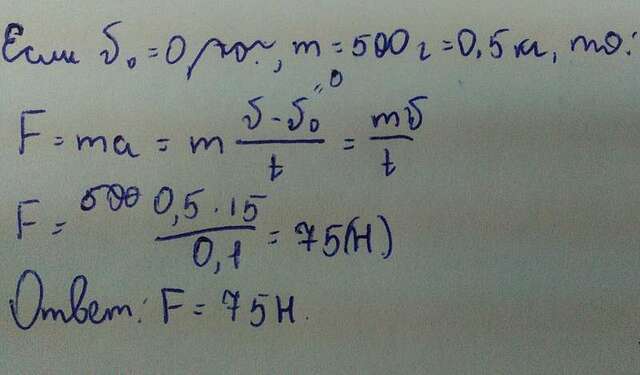 Если υ₀ = 0, m = 500 г = 0,5 кг, то:
F = ma = m (υ - υ₀⁼⁰)/t = mυ/t
F = 0,5 · 15/0,1 = 75 (Н)
Ответ: F = 75 Н.